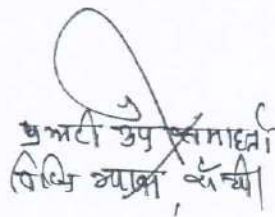 प्रभारी उप समाहर्ता
विधि शाखा, राँची।